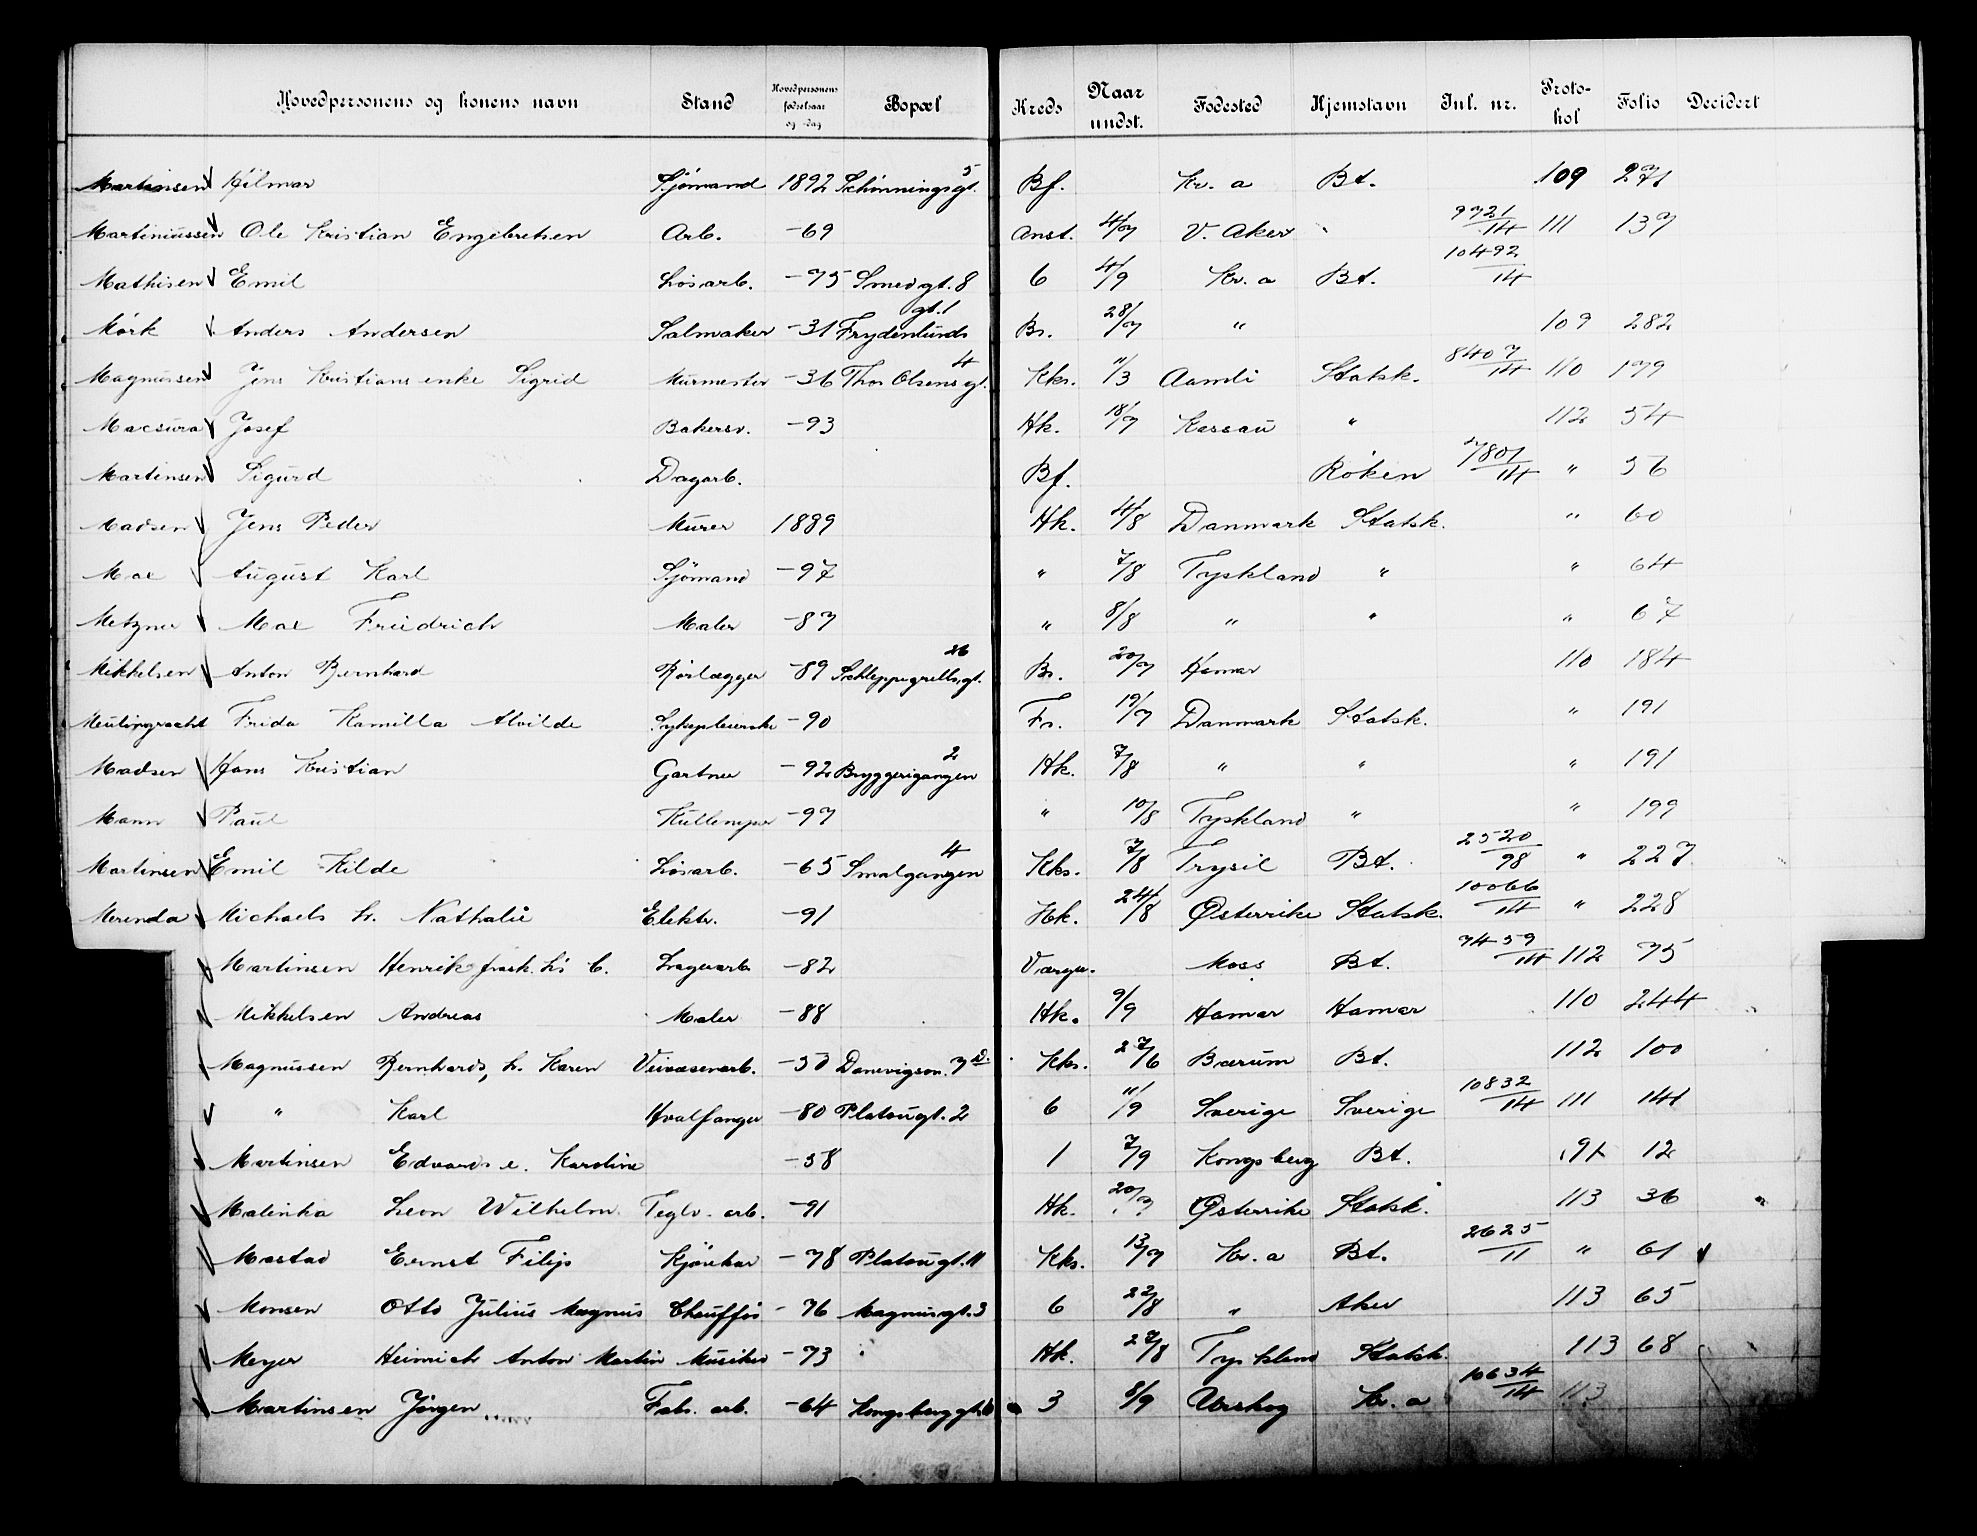 Hovedpersonens og konens navn Stand Hovedpersonens fødselsaar og -dag Bopæl Kreds Naar undst. Fødested Hjemstavn Jnl. nr. Proto-kol Folio Decidert
Martinsen Hilmar Sjömand 1892 Schönningsgt. 5 Bf. Kr. a Bt. 109 271
Martiniussen Ole Kristian Engebretsen Arb. -69 Anst. 4/7 V. Aker 9721/14 111 137
Mathisen Emil Lösarb. -75 Smedgt. 8 6 4/9 Kr. a Bt. 10492/14
Mörk Anders Andersen Salmaker -31 Frydenlunds gt. 1 Br. 28/7 " 109 282
Magnussen Jens Kristians enke Sigrid Murmester -36 Thv Olsens gt. 4 Kks. 11/3 Aamli Statsk. 8407/14 110 179
Macsura Josef Bakersv. -93 Hk. 18/7 Kassau " 112 54
Martinsen Sigurd Dagarb. Bf. Röken 7801/14 " 56
Madsen Jens Peder Murer 1889 Hk. 4/8 Danmark Statsk. " 60
Mae August Karl Sjömand -97 " 7/8 Tyskland " " 64
Metzner Max Friedrich Maler -87 " 8/8 " " " 67
Mikkelsen Anton Bernhard Rörlægger -89 Schleppegrellsgt. 26 Br. 20/7 Hamar 110 184
Meulingracht Frida Kamilla Alvilde Sykepleierske -90 Fr. 19/7 Danmark Statsk. " 191
Madsen Hans Kristian Gartner -92 Bryggerigangen 2 Hk. 7/8 " " " 191
Mann Paul Kullemper -97 " 10/8 Tyskland " " 199
Martinsen Emil Kilde Lösarb. -65 Smalgangen 4 Kks. 7/8 Trysil Bt. 2520/98 " 227
Merenda Michaels h. Nathalie Elektr. -91 Hk. 24/8 Østerrike Statsk. 10066/14 " 228
Martinsen Henrik frask. h. C. Lagerarb -82 Værge. Moss Bt. 7459/14 112 75
Mikkelsen Andreas Maler -88 Hk. 9/9 Hamar Hamar 110 244
Magnussen Bernhards, h. Karen Veivæsenarb. -50 Danevigsv. 7 d. Kks. 27/6 Bærum Bt. 112 100
" Karl Hvalfanger -80 Platougt. 2 6 11/9 Sverige Sverige 10832/14 111 141
Martinsen Edvards e. Karoline -58 1 7/9 Kongsberg Bt. 91 12
Malinka Leon Wilhelm Teglv. arb. -91 Hk. 20/7 Østerrike Statsk. 113 36
Mastad Ernst Filip Kjörekar -78 Platougt. 11 Kks. 13/7 Kr. a Bt. 2625/11 " 61
Monsen Otto Julius Magnus Chaufför -76 Magnusgt. 3 6 22/8 " Aker 113 65
Meyer Heinrich Anton Martin Musiker -73 Hk. 27/8 Tyskland Statsk. 113 68
Martinsen Jörgen Fab. arb. -64 Kongsberggt. 3 8/9 Urskog Kr. a 10634/14 113